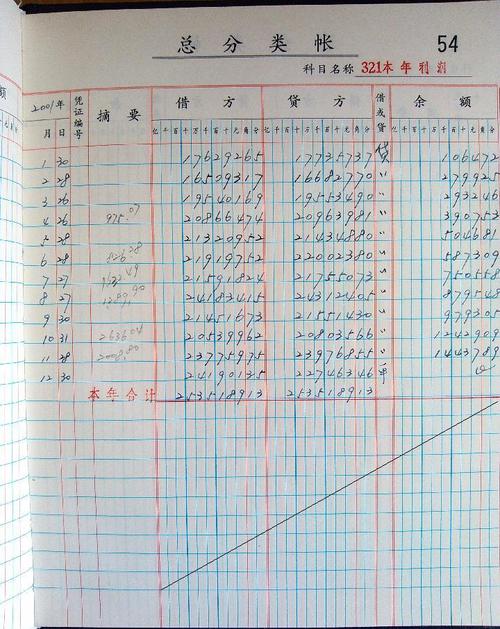 总分类帐 54
科目名称 321本年利润
2001年 凭证编号 摘要 借方 贷方 借或贷 余额
月 日 亿千百十万千百十元角分 亿千百十万千百十元角分 亿千百十万千百十元角分
1 30 17629265 17735737 贷 106472
2 28 16509317 16682770 〃 279925
3 26 19540169 19553490 〃 293246
4 26 975.07 20866474 20963981 〃 390753
5 28 21320952 21434880 〃 504681
6 28 826.28 21919752 22002380 〃 587309
7 27 1632.49 21591824 21755073 〃 750558
8 27 1289.90 24183415 24312405 〃 879548
9 30 21451673 21551430 〃 979305
10 31 2636.04 20539962 20803566 〃 1242909
11 28 2008.80 23775975 23976855 〃 1443789
12 30 24190135 22746346 平
本年合计 253518913 253518913